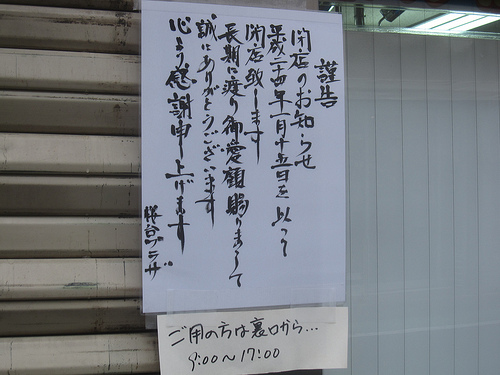 謹告
閉店のお知らせ
平成二十四年一月十五日を以って
閉店致します
長期に渡り御愛顧賜りまして
誠にありがとうございます
心より感謝申し上げます
桜台プラザ
ご用の方は裏口から…
9:00〜17:00